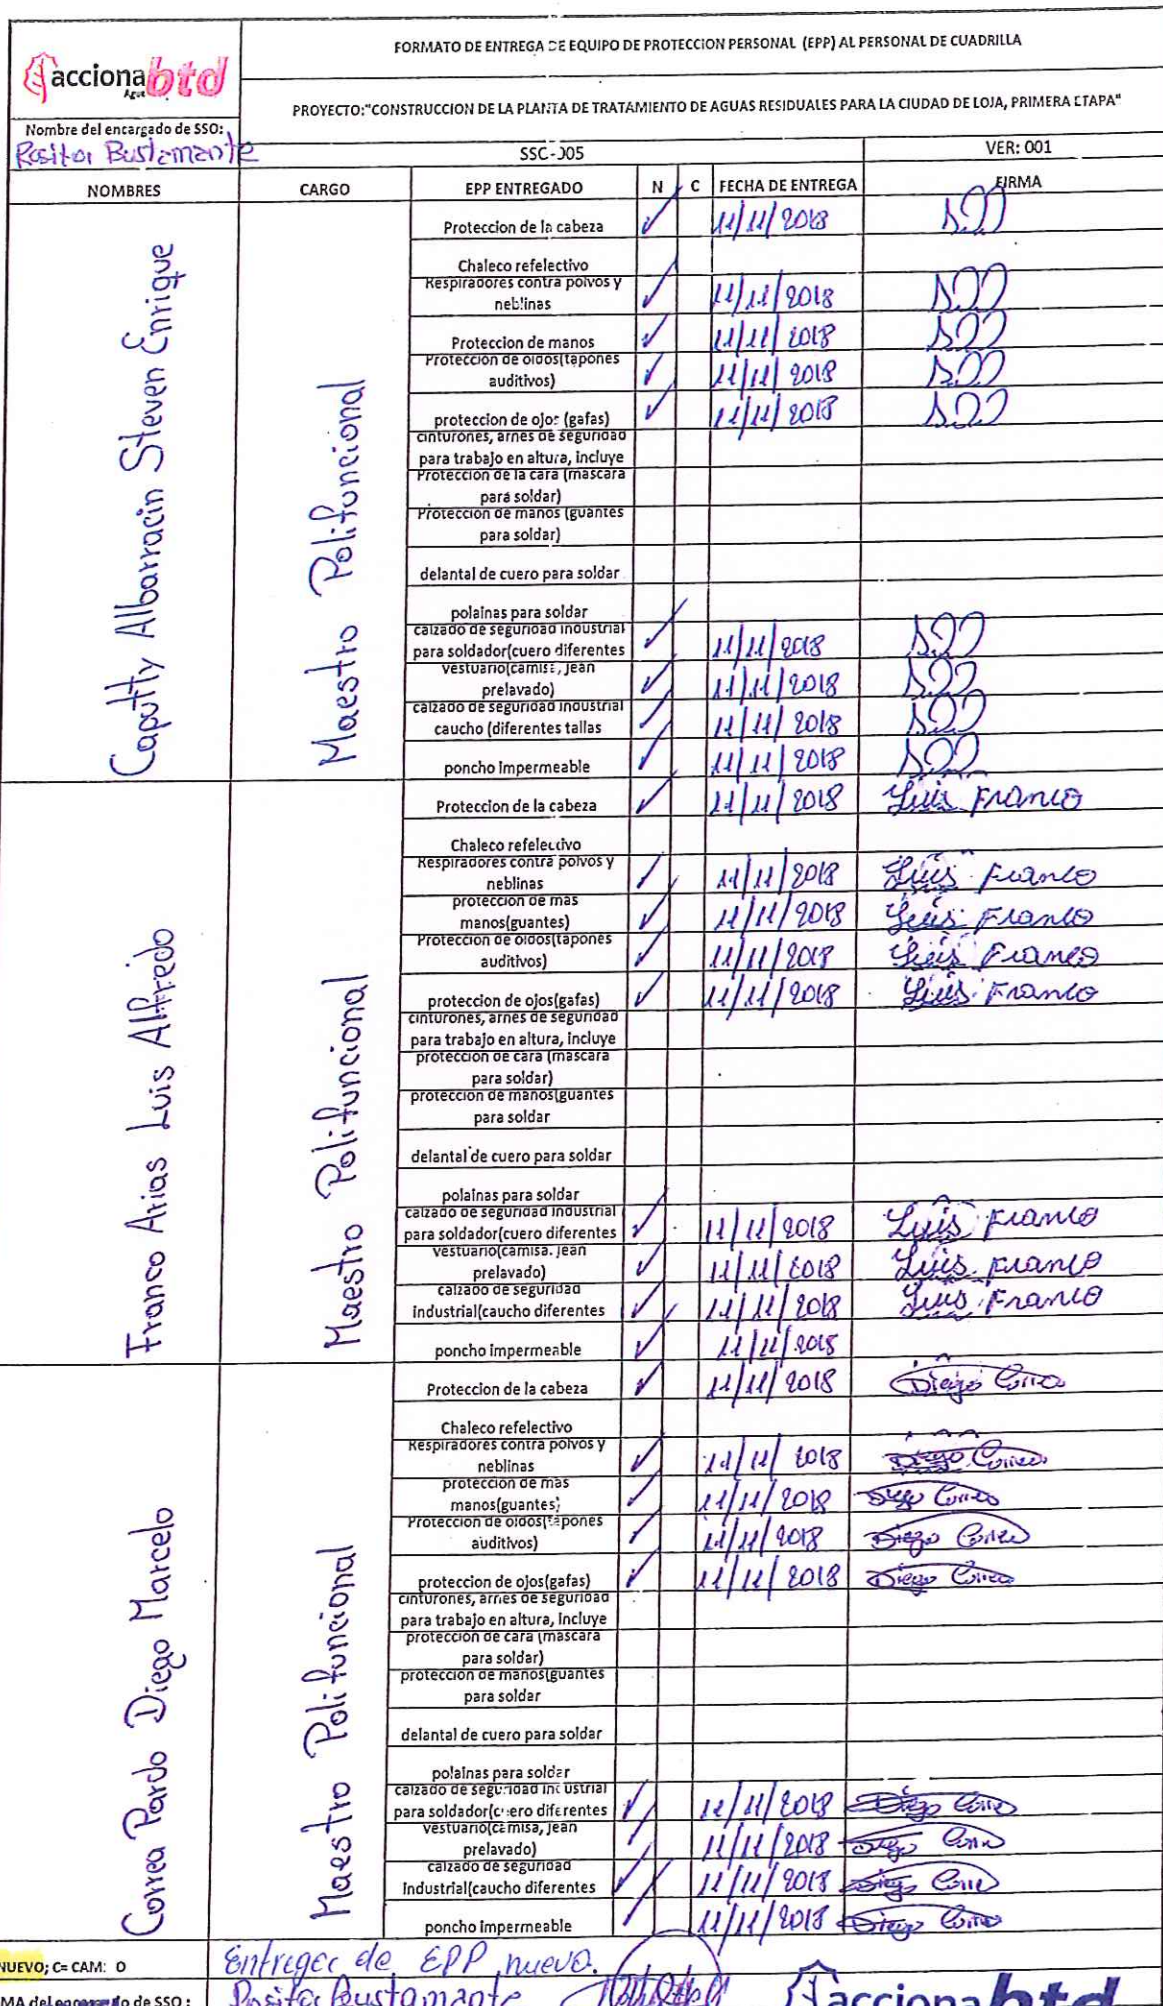 acciona btd
Agua
FORMATO DE ENTREGA DE EQUIPO DE PROTECCION PERSONAL (EPP) AL PERSONAL DE CUADRILLA
PROYECTO:"CONSTRUCCION DE LA PLANTA DE TRATAMIENTO DE AGUAS RESIDUALES PARA LA CIUDAD DE LOJA, PRIMERA ETAPA"
Nombre del encargado de SSO:
Rosita Bustamante
SSC-005 VER: 001
NOMBRES CARGO EPP ENTREGADO N C FECHA DE ENTREGA FIRMA
Caputty Albarracin Steven Enrique
Maestro Polifuncional
Proteccion de la cabeza ✓ 11/11/2018
Chaleco refelectivo
Respiradores contra polvos y
neblinas ✓ 11/11/2018
Proteccion de manos ✓ 11/11/2018
Proteccion de oidos(tapones
auditivos) ✓ 11/11/2018
proteccion de ojos (gafas) ✓ 11/11/2018
cinturones, arnes de seguridad
para trabajo en altura, incluye
Proteccion de la cara (mascara
para soldar)
Proteccion de manos (guantes
para soldar)
delantal de cuero para soldar
polainas para soldar
calzado de seguridad industrial
para soldador(cuero diferentes ✓ 11/11/2018
vestuario(camisa, jean
prelavado) ✓ 11/11/2018
calzado de seguridad industrial
caucho (diferentes tallas ✓ 11/11/2018
poncho impermeable ✓ 11/11/2018
Franco Arias Luis Alfredo
Maestro Polifuncional
Proteccion de la cabeza ✓ 11/11/2018 Luis Franco
Chaleco refelectivo
Respiradores contra polvos y
neblinas ✓ 11/11/2018 Luis Franco
protección de mas
manos(guantes) ✓ 11/11/2018 Luis Franco
Protección de oidos(tapones
auditivos) ✓ 11/11/2018 Luis Franco
proteccion de ojos(gafas) ✓ 11/11/2018 Luis Franco
cinturones, arnes de seguridad
para trabajo en altura, incluye
protección de cara (mascara
para soldar)
protección de manos(guantes
para soldar
delantal de cuero para soldar
polainas para soldar
calzado de seguridad industrial
para soldador(cuero diferentes ✓ 11/11/2018 Luis Franco
vestuario(camisa. jean
prelavado) ✓ 11/11/2018 Luis Franco
calzado de seguridad
industrial(caucho diferentes ✓ 11/11/2018 Luis Franco
poncho impermeable ✓ 11/11/2018
Correa Pardo Diego Marcelo
Maestro Polifuncional
Proteccion de la cabeza ✓ 11/11/2018 Diego Correa
Chaleco refelectivo
Respiradores contra polvos y
neblinas ✓ 11/11/2018 Diego Correa
protección de mas
manos(guantes) ✓ 11/11/2018 Diego Correa
Protección de oidos(tapones
auditivos) ✓ 11/11/2018 Diego Correa
proteccion de ojos(gafas) ✓ 11/11/2018 Diego Correa
cinturones, arnes de seguridad
para trabajo en altura, incluye
protección de cara (mascara
para soldar)
protección de manos(guantes
para soldar
delantal de cuero para soldar
polainas para soldar
calzado de seguridad industrial
para soldador(cuero diferentes ✓ 11/11/2018 Diego Correa
vestuario(camisa, jean
prelavado) ✓ 11/11/2018 Diego Correa
calzado de seguridad
industrial(caucho diferentes ✓ 11/11/2018 Diego Correa
poncho impermeable ✓ 11/11/2018 Diego Correa
NUEVO; C= CAM: O Entrega de EPP nuevo.
MA del encargado de SSO: Rosita Bustamante acciona btd